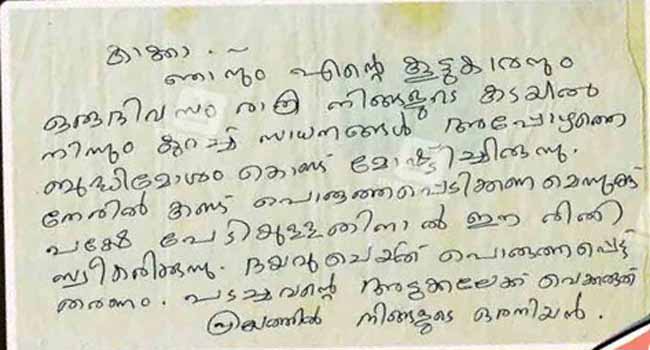 കാക്കാ . ~
ഞാനും എന്റെ കൂട്ടുകാരനും
ഒരുദിവസം രാത്രി നിങ്ങളുടെ കടയിൽ
നിന്നും കുറച്ച് സാധനങ്ങൾ അപ്പോഴത്തെ
ബുദ്ധിമോശം കൊണ്ട് മോഷ്ടിച്ചിരുന്നു.
നേരിൽ കണ്ട് പൊരുത്തപ്പെടീക്കണമെന്നുണ്ട്
പക്ഷേ പേടിയുള്ളതിനാൽ ഈ രീതി
സ്വീകരിക്കുന്നു. ദയവുചെയ്ത് പൊരുത്തപ്പെട്ട്
തരണം. പടച്ചവന്റെ അടുക്കലേക്ക് വെക്കരുത്
പ്രിയത്തിൽ നിങ്ങളുടെ ഒരനിയൻ.